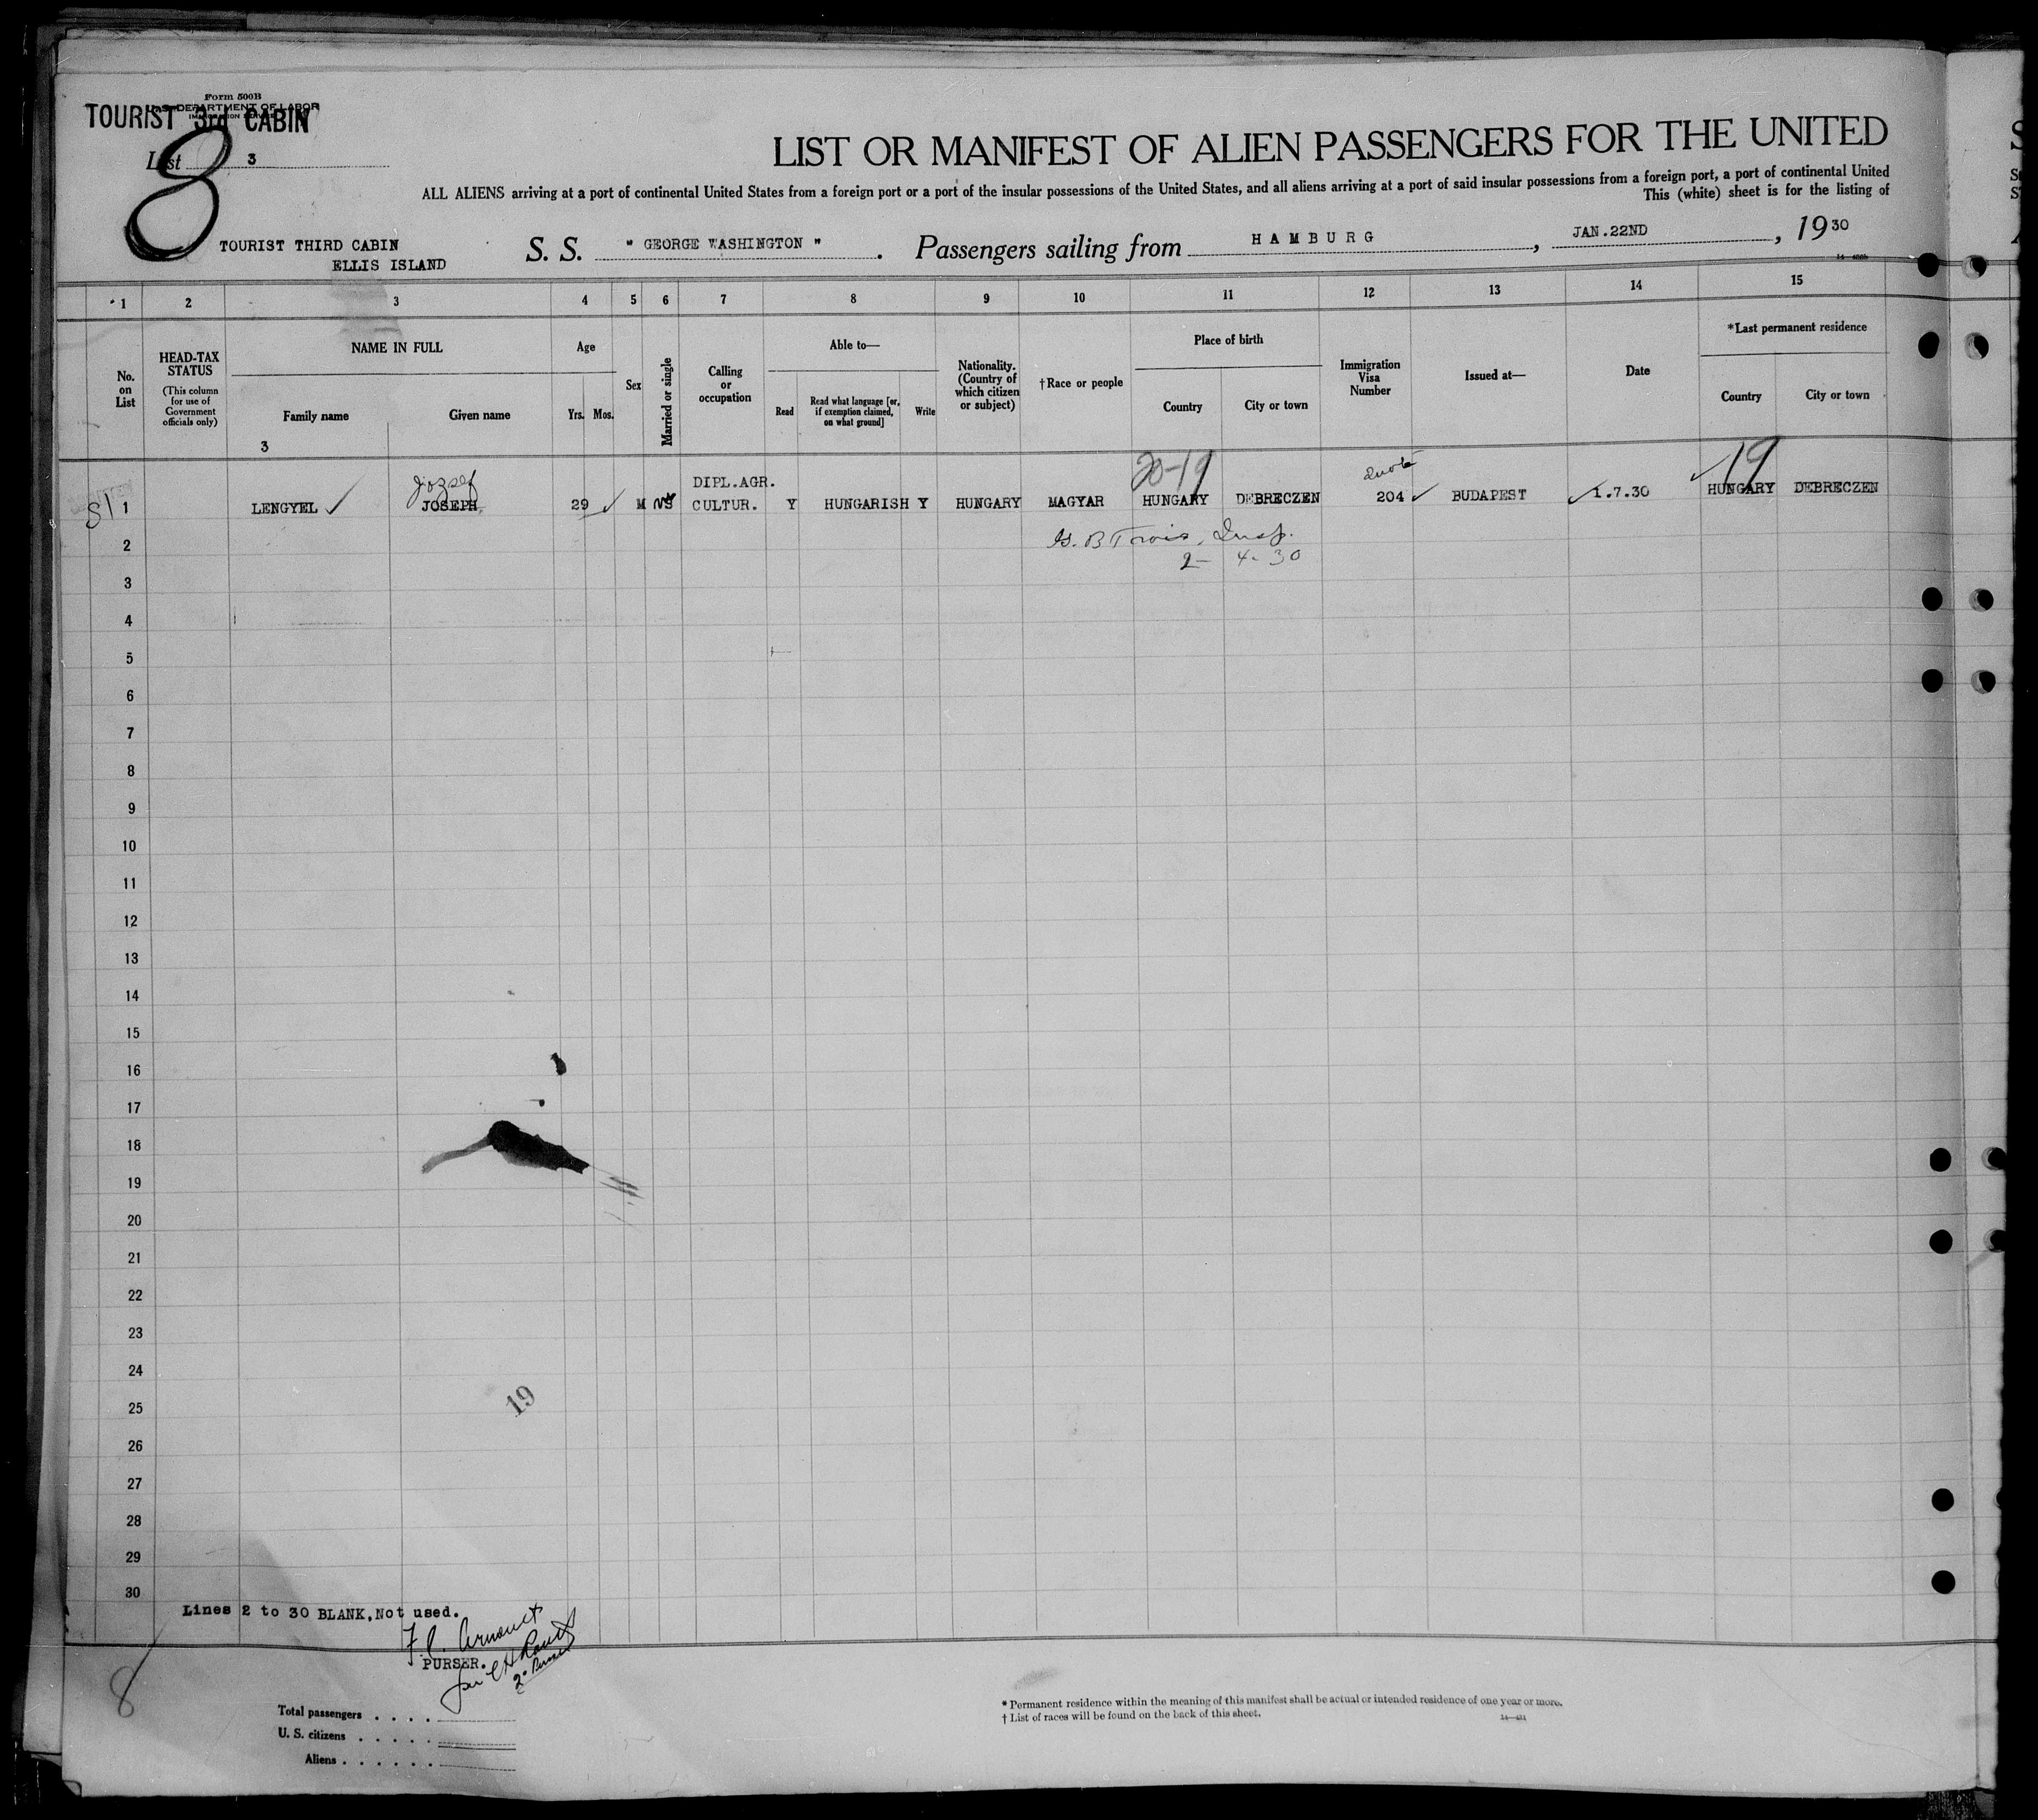 Form 500B
U. S. DEPARTMENT OF LABOR
TOURIST 3rd CABIN
List 3
8
LIST OR MANIFEST OF ALIEN PASSENGERS FOR THE UNITED
ALL ALIENS arriving at a port of continental United States from a foreign port or a port of the insular possessions of the United States, and all aliens arriving at a port of said insular possessions from a foreign port, a port of continental United
This (white) sheet is for the listing of
TOURIST THIRD CABIN
ELLIS ISLAND
S. S. " GEORGE WASHINGTON ". Passengers sailing from HAMBURG, JAN.22ND, 1930
1 2 3 4 5 6 7 8 9 10 11 12 13 14 15
No. on List
HEAD-TAX STATUS
(This column for use of Government officials only)
NAME IN FULL
Family name
Given name
3
Age
Yrs. Mos.
Sex
Married or single
Calling or occupation
Able to—
Read
Read what language [or, if exemption claimed, on what ground]
Write
Nationality. (Country of which citizen or subject)
†Race or people
Place of birth
Country
City or town
Immigration Visa Number
Issued at—
Date
*Last permanent residence
Country
City or town
József 20-19 Quota 19
DIPL.AGR.
1 LENGYEL JOSEPH 29 M CULTUR. Y HUNGARISH Y HUNGARY MAGYAR HUNGARY DEBRECZEN 204 BUDAPEST 1.7.30 HUNGARY DEBRECZEN
2 Insp.
2-4-30
3
4
5
6
7
8
9
10
11
12
13
14
15
16
17
18
19
20
21
22
23
24
19
25
26
27
28
29
30
Lines 2 to 30 BLANK,Not used.
PURSER.
8
Total passengers . . . .
U. S. citizens . . . . .
Aliens . . . . . .
* Permanent residence within the meaning of this manifest shall be actual or intended residence of one year or more.
† List of races will be found on the back of this sheet.